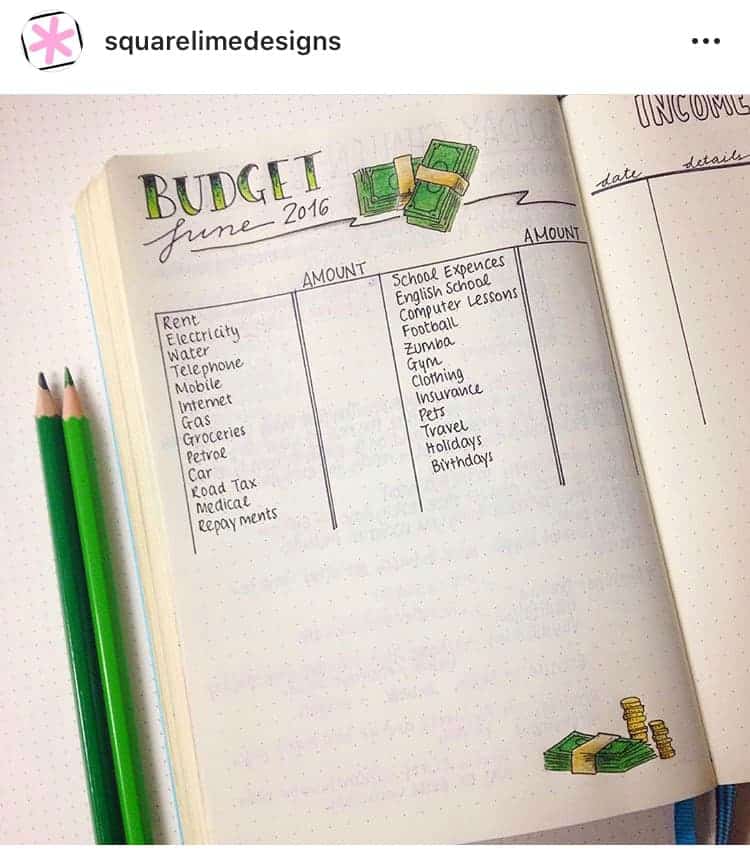 squarelimedesigns
BUDGET
June 2016
AMOUNT
Rent
Electricity
Water
Telephone
Mobile
Internet
Gas
Groceries
Petrol
Car
Road Tax
Medical
Repayments
AMOUNT
School Expences
English School
Computer Lessons
Football
Zumba
Gym
Clothing
Insurance
Pets
Travel
Holidays
Birthdays
INCOME
date details